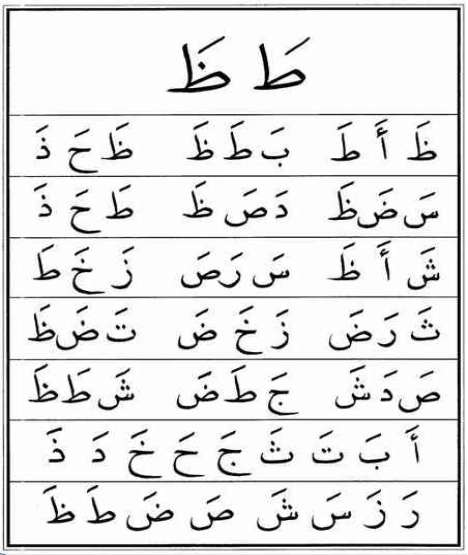 طَ ظَ
ظَ أَ طَ بَ طَ ظَ ظَ حَ ذَ
سَ ضَ ظَ دَ صَ ظَ طَ حَ ذَ
شَ أَ ظَ سَ رَ صَ زَ خَ طَ
ثَ رَ ضَ زَ خَ ضَ تَ ضَ ظَ
صَ دَ شَ جَ طَ ضَ شَ طَ ظَ
أَ بَ تَ ثَ جَ حَ خَ دَ ذَ
رَ زَ سَ شَ صَ ضَ طَ ظَ